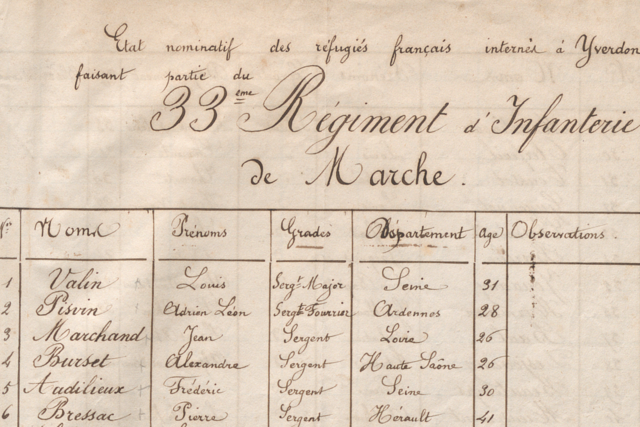 Etat nominatif des réfugiés français internés à Yverdon
faisant partie du
33eme Régiment d'Infanterie
de Marche.
Nos Noms Prénoms Grades Département Age Observations.
1 Valin Louis Sergt Major Seine 31
2 Pisvin Adrien Léon Sergt Fourrier Ardennes 28
3 Marchand Jean Sergent Loire 26
4 Burset Alexandre Sergent Haute Saône 26
5 Audilieux Frédéric Sergent Seine 30
6 Bressac Pierre Sergent Hérault 41